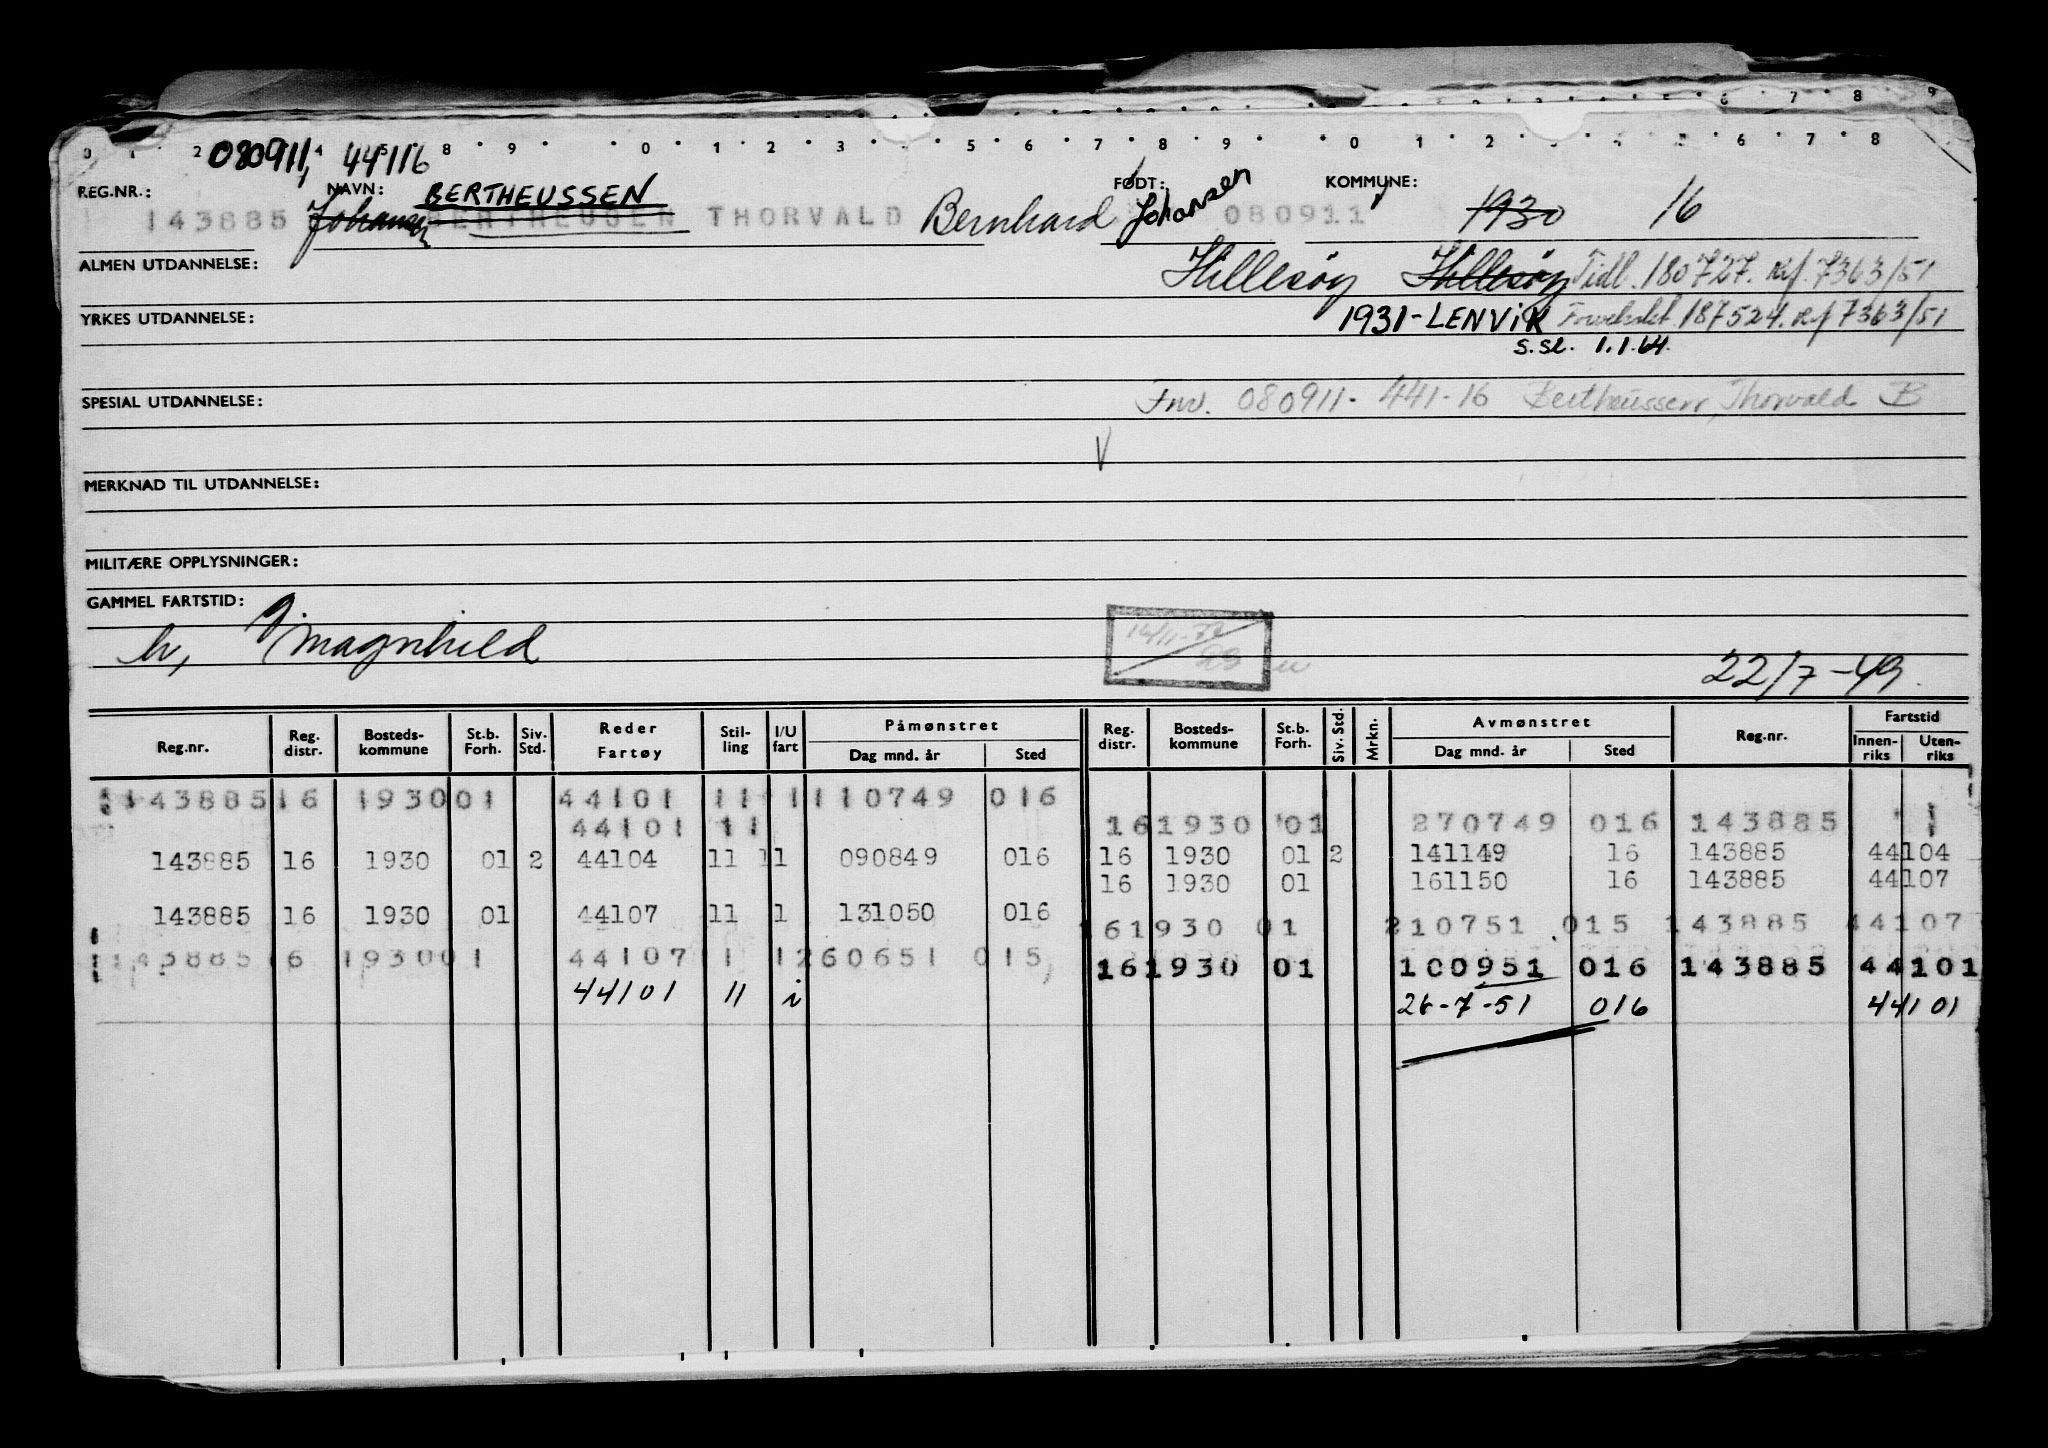 080911, 44116
REG.NR.: NAVN: BERTHEUSSEN FØDT: KOMMUNE:
143885 Johansen BERTHEUSEN THORVALD Bernhard Johansen 080911 1930 16
ALMEN UTDANNELSE: Hillesøy Hillesøy Tidl. 180727. Kf. 7363/51
YRKES UTDANNELSE: 1931-LENVIK 187524. Kf 7363/51
S.Sl. 1.1.64.
SPESIAL UTDANNELSE: Fnv. 080911- 441-16 Bertheussen, Thorvald B
V
MERKNAD TIL UTDANNELSE:
MILITÆRE OPPLYSNINGER:
GAMMEL FARTSTID:
h, g. Magnhild 22/7-49.
Reg.nr. Reg. distr. Bosteds-kommune St.b. Forh. Siv. Std. Reder Fartøy Stil-ling I/U fart Påmønstret Dag mnd. år Sted Reg. distr. Bosteds-kommune St.b. Forh. Siv. Std. Mrkn. Avmønstret Dag mnd. år Sted Reg.nr. Fartstid Innen-riks Uten-riks
143885 16 1930 01 44101 11 1 110749 016
44101 11 16 1930 01 270749 016 143885
143885 16 1930 01 2 44104 11 1 090849 016 16 1930 01 2 141149 16 143885 44104
16 1930 01 161150 16 143885 44107
143885 16 1930 01 44107 11 1 131050 016
16 1930 01 210751 015 143885 44107
143885 16 1930 01 44107 11 1 260651 015
16 1930 01 100951 016 143885 44101
44101 11 i 26-7-51 016 44101